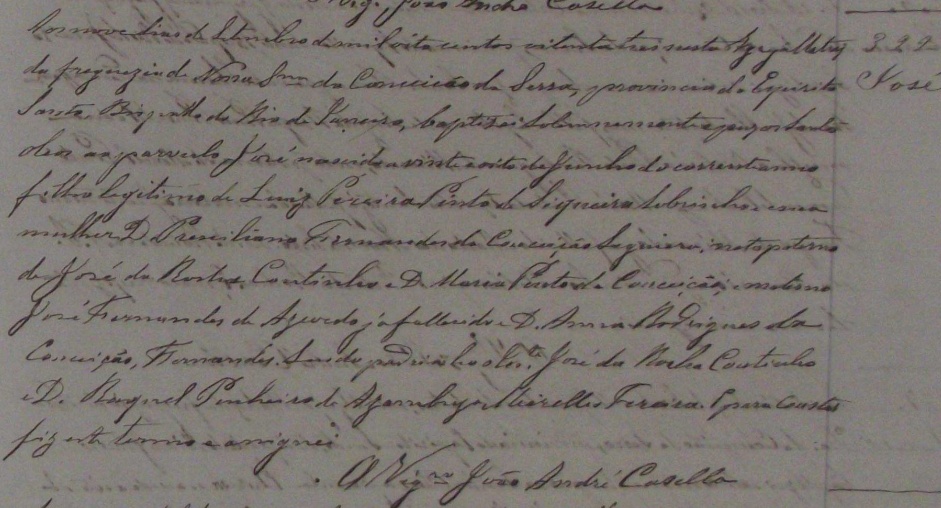 Vigr. João André Casella
Aos nove dias de Setembro de mil oito centos oitenta e tres nesta Igreja Matriz
da freguezia de Nossa Snra da Conceição da Serra, provincia do Espirito
Santo, Bispado do Rio de Janeiro, baptizei solennemente e puz os Santos
oleos ao parvulo José nascido a vinte e oito de Junho do corrente anno
filho legitimo de Luiz Pereira Pinto de Siqueira Sobrinho e sua
mulher D. Presiliana Fernandes da Conceição Siqueira; neto paterno
de José da Rocha Coutinho e D. Maria Pinto da Conceição; e materno
José Fernandes de Azevedo já fallecido e D. Anna Rodrigues da
Conceição, Fernandes. Sendo padrinhos José da Rocha Coutinho
e D. Raquel Pinheiro de Azambuja Meirelles Ferreira. E para constar
fiz este termo e assignei
O Vigro João André Casella
322
José